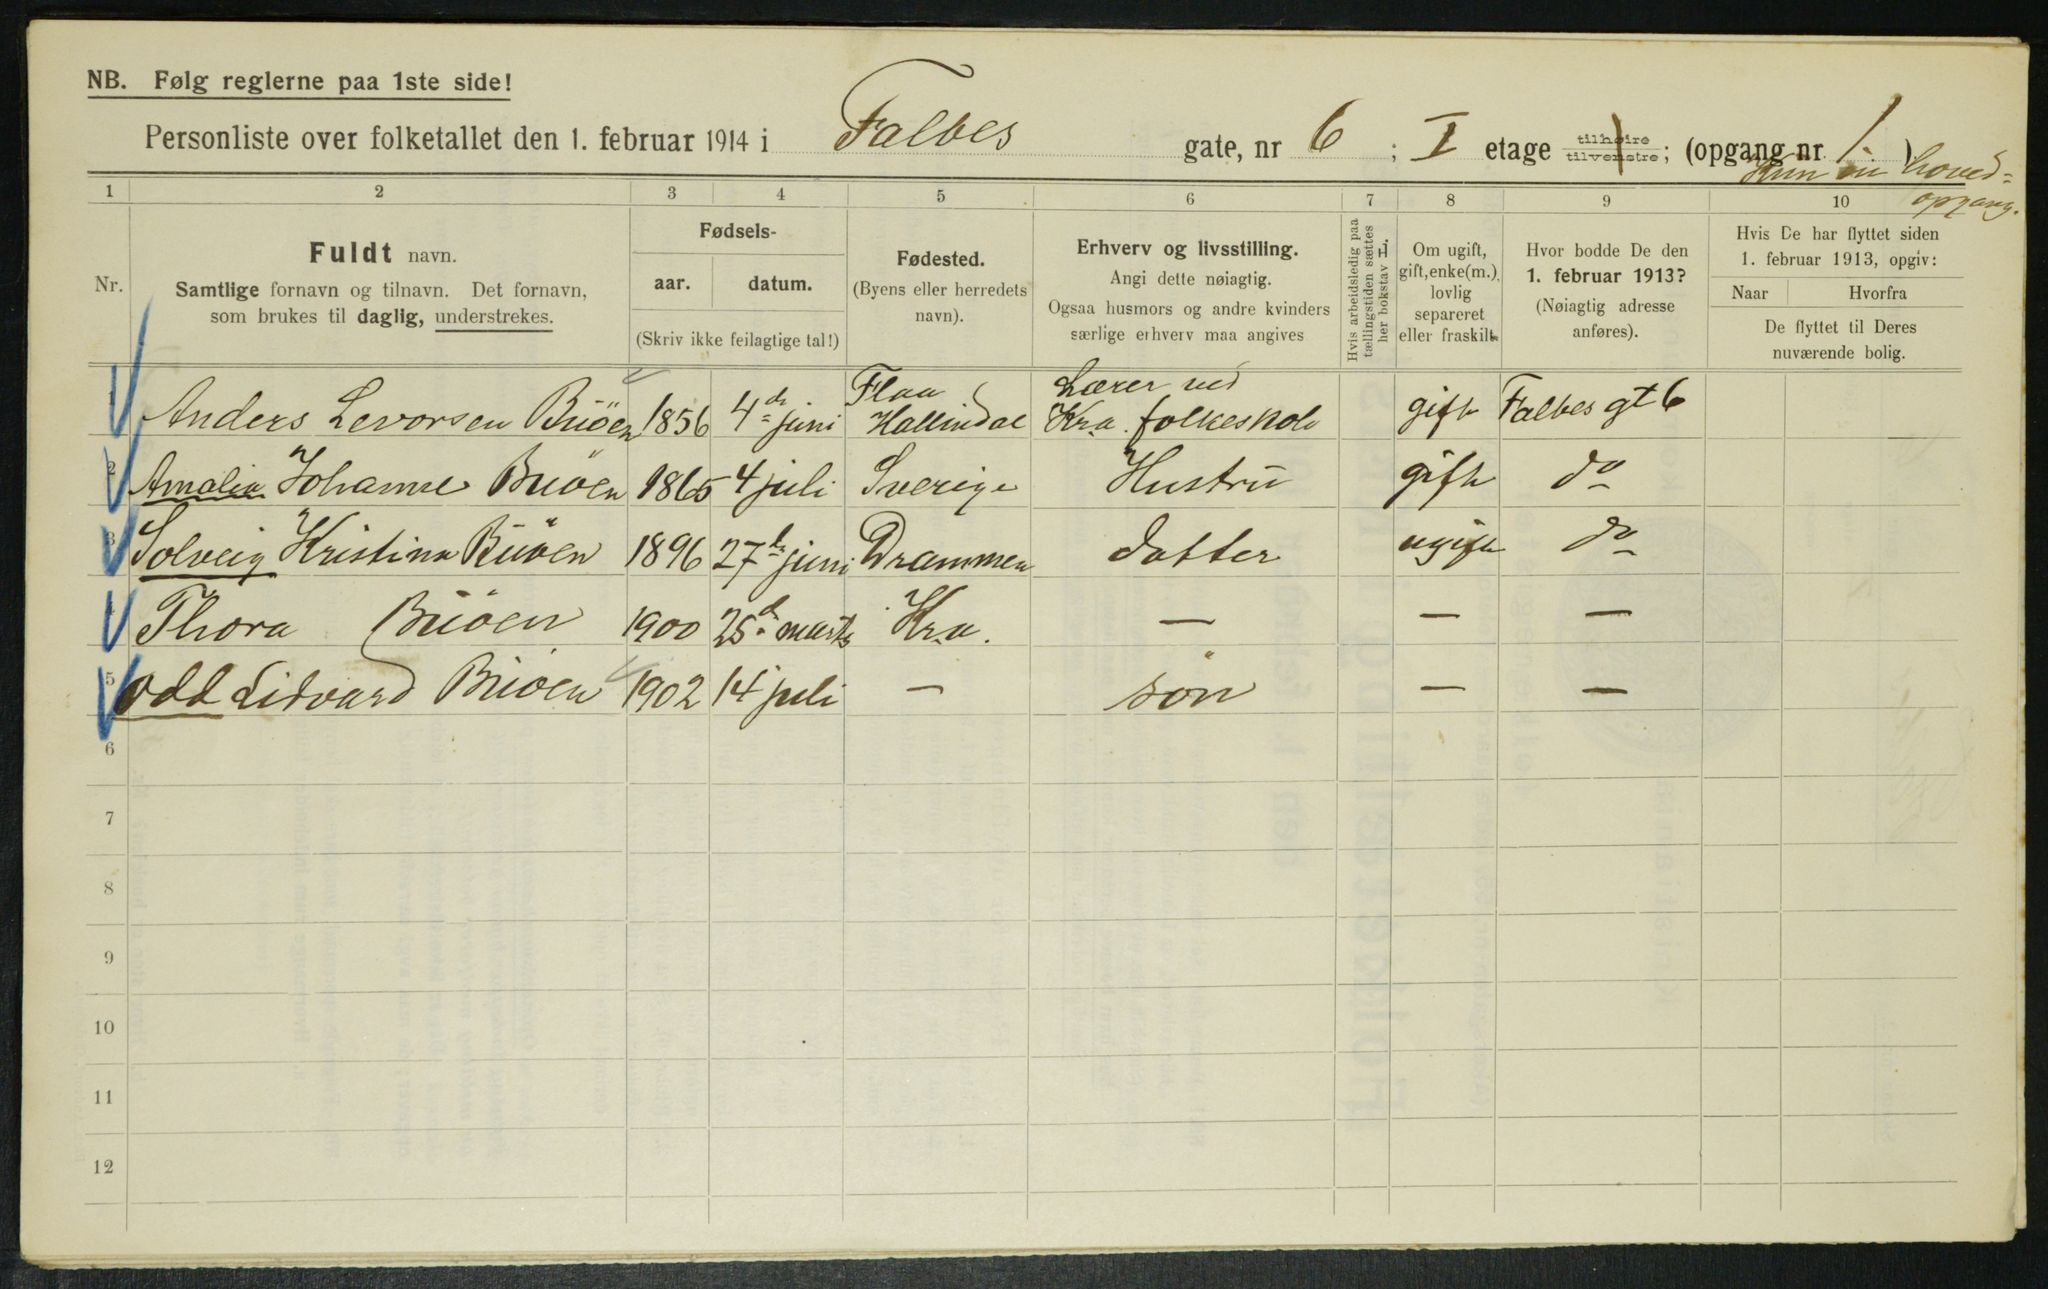 NB. Følg reglerne paa 1ste side!
Personliste over folketallet den 1. februar 1914 i Falbes gate, nr 6 ; I etage tilhøire tilvenstre ; (opgang nr 1. )
Kun en hoved=
opgang.
1 2 3 4 5 6 7 8 9 10
Nr.
Fuldt navn.
Samtlige fornavn og tilnavn. Det fornavn,
som brukes til daglig, understrekes.
Fødsels-
aar. datum.
(Skriv ikke feilagtige tal!)
Fødested.
(Byens eller herredets
navn).
Erhverv og livsstilling.
Angi dette nøiagtig.
Ogsaa husmors og andre kvinders
særlige erhverv maa angives
Hvis arbeidsledig paa
tællingstiden sættes
her bokstav L.
Om ugift,
gift, enke(m.),
lovlig
separeret
eller fraskilt.
Hvor bodde De den
1. februar 1913?
(Nøiagtig adresse
anføres).
Hvis De har flyttet siden
1. februar 1913, opgiv:
Naar Hvorfra
De flyttet til Deres
nuværende bolig.
1 Anders Levorsen Büöen 1856 4de juni Flaa Hallindal Lærer ved Kra. folkeskole gift Falbes gt 6
2 Amalia Johanne Büöen 1865 4 juli Sverige Hustrü gift do
3 Solveig Kristina Büöen 1896 27de juni Drammen datter ugift do
4 Thora Büöen 1900 25de marts Kra. — — —
5 Odd Lidvard Büöen 1902 14 juli — sön — —
6
7
8
9
10
11
12